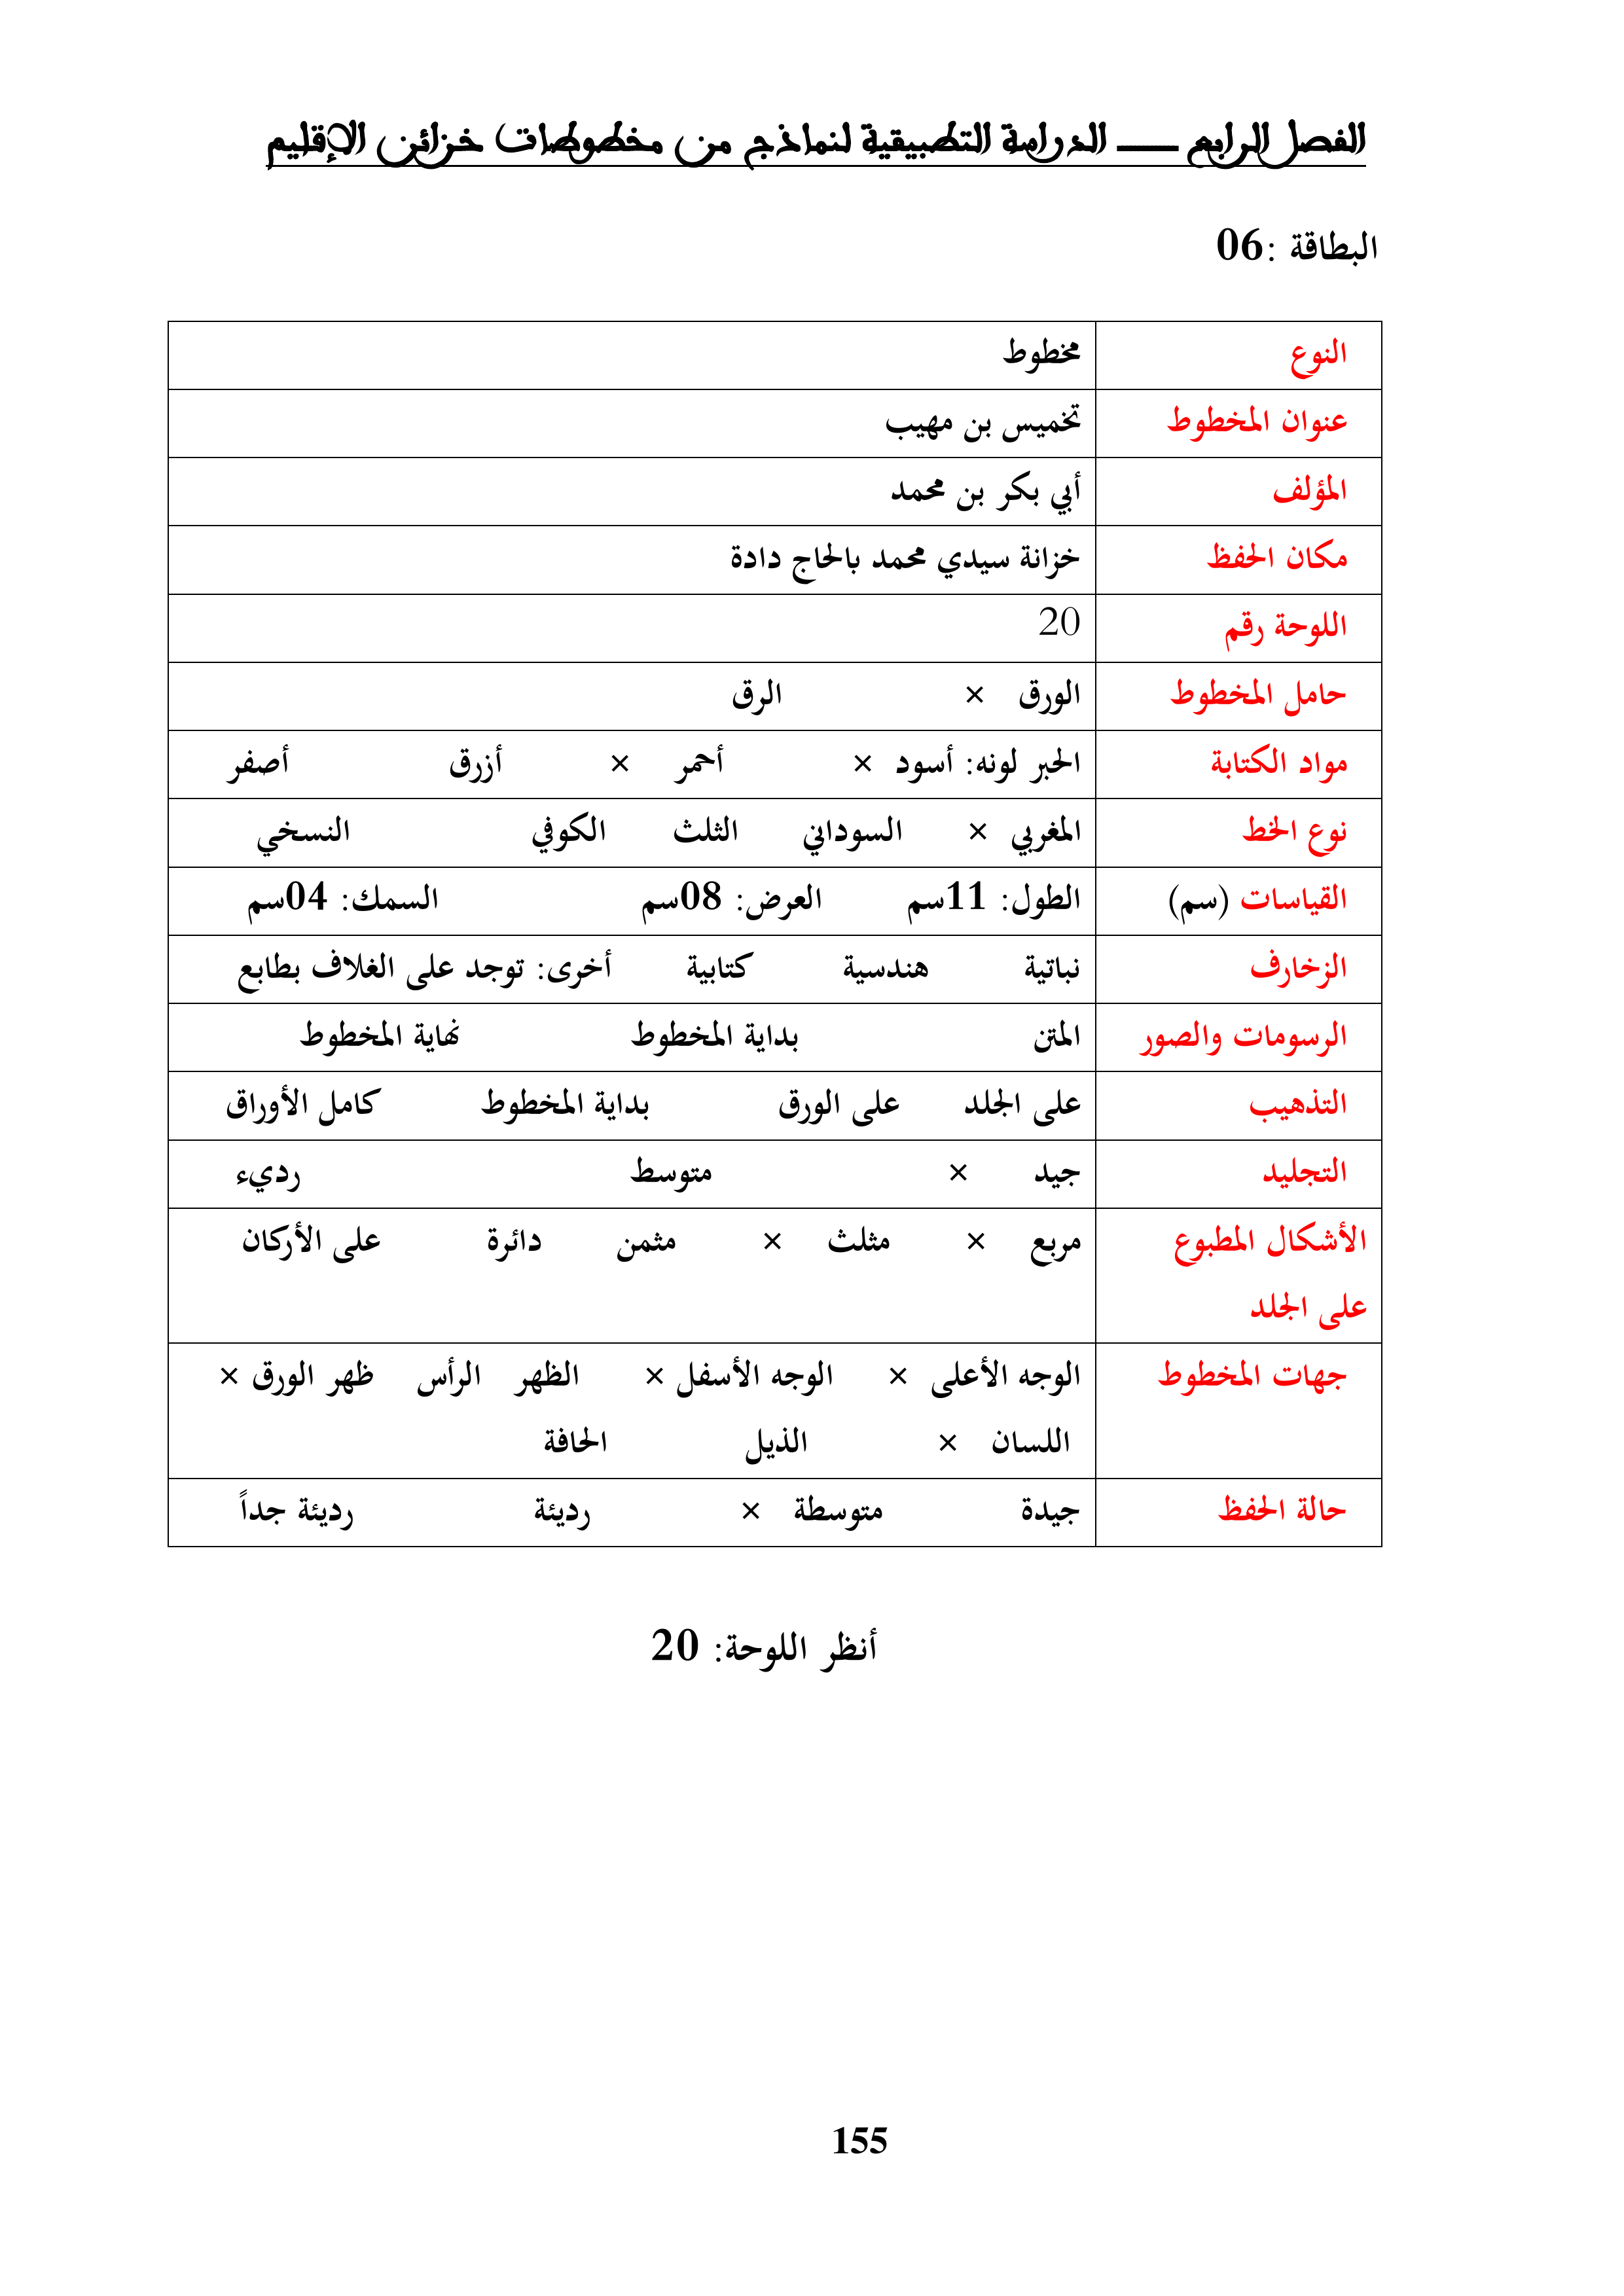 الفصل الرابع ـــــــ الدراسة التطبيقية لنماذج من مخطوطات خزائن الإقليم
البطاقة :06
النوع مخطوط
عنوان المخطوط تخميس بن مهيب
المؤلف أبي بكر بن محمد
مكان الحفظ خزانة سيدي محمد بالحاج دادة
اللوحة رقم 20
حامل المخطوط الورق × الرق
مواد الكتابة الحبر لونه: أسود × أحمر × أزرق أصفر
نوع الخط المغربي × السوداني الثلث الكوفي النسخي
القياسات (سم) الطول: 11سم العرض: 08سم السمك: 04سم
الزخارف نباتية هندسية كتابية أخرى: توجد على الغلاف بطابع
الرسومات والصور المتن بداية المخطوط نهاية المخطوط
التذهيب على الجلد على الورق بداية المخطوط كامل الأوراق
التجليد جيد × متوسط رديء
الأشكال المطبوع مربع × مثلث × مثمن دائرة على الأركان
على الجلد
جهات المخطوط الوجه الأعلى × الوجه الأسفل × الظهر الرأس ظهر الورق ×
اللسان × الذيل الحافة
حالة الحفظ جيدة متوسطة × رديئة رديئة جداً
أنظر اللوحة: 20
155